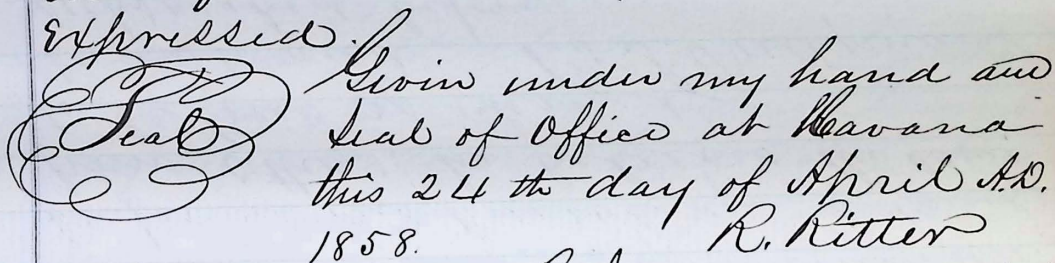 Expressed.
Seal
Givin under my hand and
Seal of Office at Havana
this 24th day of April A.D.
1858.
R. Ritter